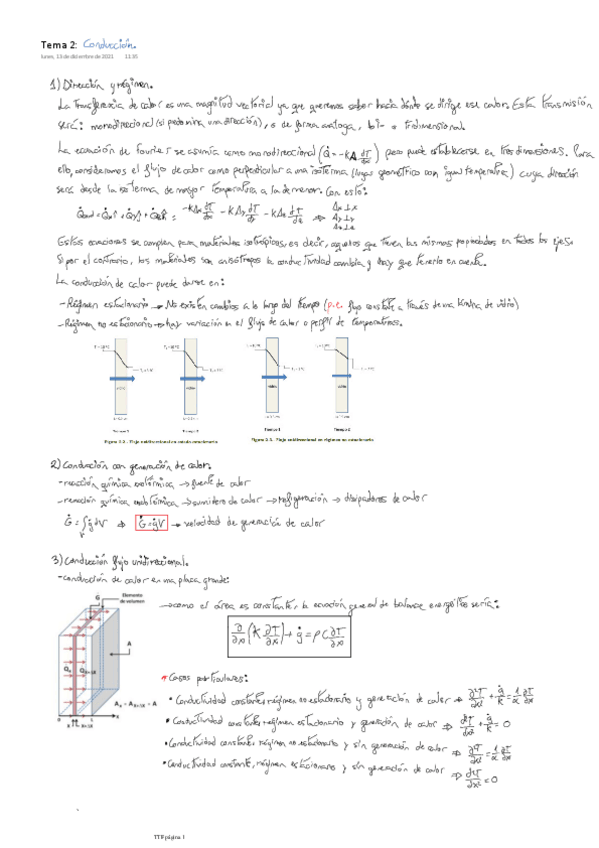 Tema 2: Conducción.
lunes, 13 de diciembre de 2021 11:35
1) Dirección y régimen.
La transferencia de calor es una magnitud vectorial ya que queremos saber hacia dónde se dirige ese calor. Esta transmisión
será: monodireccional (si predomina una dirección), o de forma análoga, bi- o tridimensional.
La ecuación de Fourier se asumía como monodireccional (Q̇ = -kA dT/dx) pero puede establecerse en tres dimensiones. Para
ello, consideramos el flujo de calor como perpendicular a una isoterma (lugar geométrico con igual temperatura) cuya dirección
será desde la isoterma de mayor temperatura a la de menor. Con esto:
= -kAx dT/dx - kAy dT/dy - kAz dT/dz ⇒ Ax⊥x
Ay⊥y
Az⊥z
Estas ecuaciones se cumplen para materiales isotrópicos, es decir, aquellos que tienen las mismas propiedades en todos los ejes
Si por el contrario, los materiales son anisótropos la conductividad cambia y hay que tenerlo en cuenta.
La conducción de calor puede darse en:
-Régimen estacionario → No existen cambios a lo largo del tiempo (p.e. flujo constante a través de una lámina de vidrio)
-Régimen no estacionario → hay variación en el flujo de calor o perfil de temperaturas.
Tiempo 1 Tiempo 2 Tiempo 1 Tiempo 2
Figura 2.2.- Flujo unidireccional en estado estacionario
Figura 2.3.- Flujo unidireccional en régimen no estacionario
2) Conducción con generación de calor.
-reacción química exotérmica → fuente de calor
-reacción química endotérmica → sumidero de calor → refrigeración → disipadores de calor
Ġ = ∫ ġ dV ⇒ Ġ = ġV → velocidad de generación de calor
V
3) Conducción flujo unidireccional.
-conducción de calor en una placa grande:
Elemento
de volumen
G
A
0 x x+Δx L x
Ax = Ax+Δx = A
→ como el área es constante, la ecuación general de balance energético sería:
∂/∂x (k ∂T/∂x) + ġ = ρC ∂T/∂x
* Casos particulares:
• Conductividad constante, régimen no estacionario y generación de calor ⇒ ∂²T/∂x² + ġ/k = 1/α ∂T/∂x
• Conductividad constante, régimen estacionario y generación de calor ⇒ d²T/dx² + ġ/k = 0
• Conductividad constante, régimen no estacionario y sin generación de calor ⇒ ∂²T/∂x² = 1/α ∂T/∂x
• Conductividad constante, régimen estacionario y sin generación de calor ⇒ d²T/dx² = 0
TTE página 1